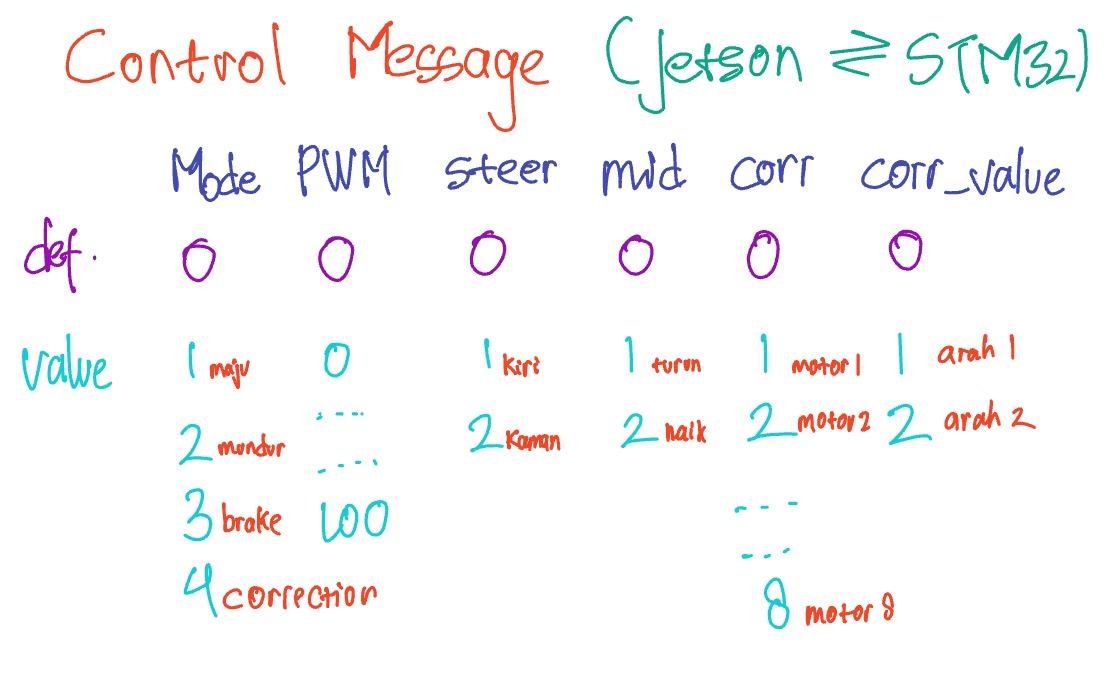 Control Message (Jetson ⇌ STM32)
Mode PWM steer mid corr corr_value
def. 0 0 0 0 0 0
value 1 maju 0 1 kiri 1 turun 1 motor 1 1 arah 1
2 mundur ---- 2 Kanan 2 naik 2 motor 2 2 arah 2
3 brake ---- 100 ---
4 correction --- 8 motor 8